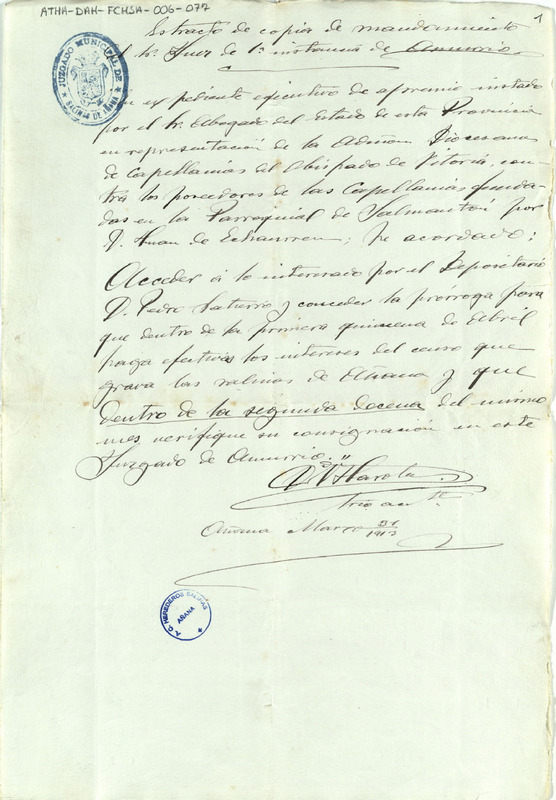 ATHA-DAH-FCHSA-006-077
1
Extracto de copia de mandamiento
del Sr. Juez de 1ª instancia de Amurrio
JUZGADO MUNICIPAL DE
SALINAS DE AÑANA
En expediente ejecutivo de apremio instado
por el Sr. Abogado del Estado de esta Provincia
en representación de la Admon. Diocesana
de Capellanías del Obispado de Vitoria, con-
tra los poseedores de las Capellanías funda-
das en la Parroquial de Salmantón por
D. Juan de Echaurren; he acordado:
Acceder á lo interesado por el Depositario
D. Pedro y conceder la prórroga para
que dentro de la primera quincena de Abril
haga efectivos los intereses del censo que
grava las salinas de Añana y que
dentro de la segunda decena del mismo
mes verifique su consignación en este
Juzgado de Amurrio."
Añana Marzo 31/1913
A.G. HEREDEROS SALINAS
AÑANA